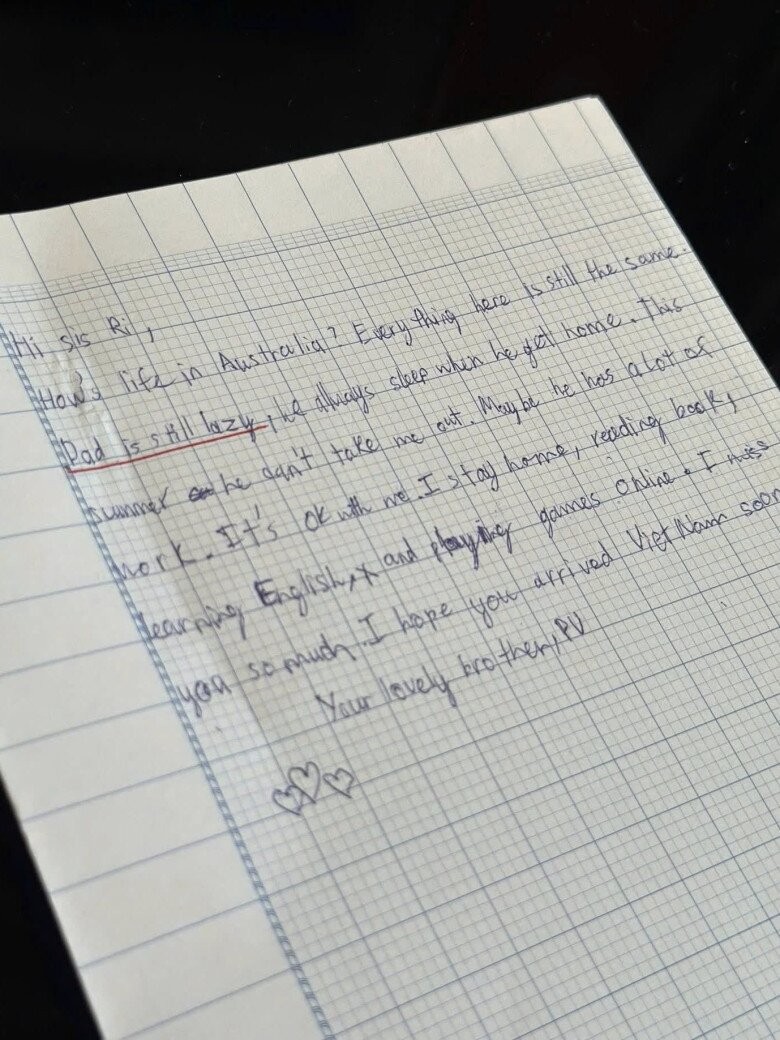 Hi sis Ri,
How's life in Australia? Everything here is still the same.
Dad is still lazy, he always sleep when he get home. This
summer he don't take me out. Maybe he has a lot of
work. It's OK with me. I stay home, reading book,
learning English, and playing games online. I miss
you so much. I hope you arrived Viet Nam soon
Your lovely brother, PV